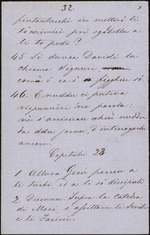 32
pintantucchi eu mettiri li
to nnimici pri sgabellu a
li to pedi?
45 Si dunca Davidi lu
chiama Signuri
comu è so figghiu?
46. E nuddu ci puteva
rispunniri na parola;
nè s'arrisicau chiù nuddu
da ddu jornu, d'interrogarlu
ancora.
Capitulu 23
1 Allura Gesù parrau a
li turbi e a li so discipuli
2 Dicennu: Supra la Càtedra
di Mosè s'assittaru li Scribi
e li Farisei